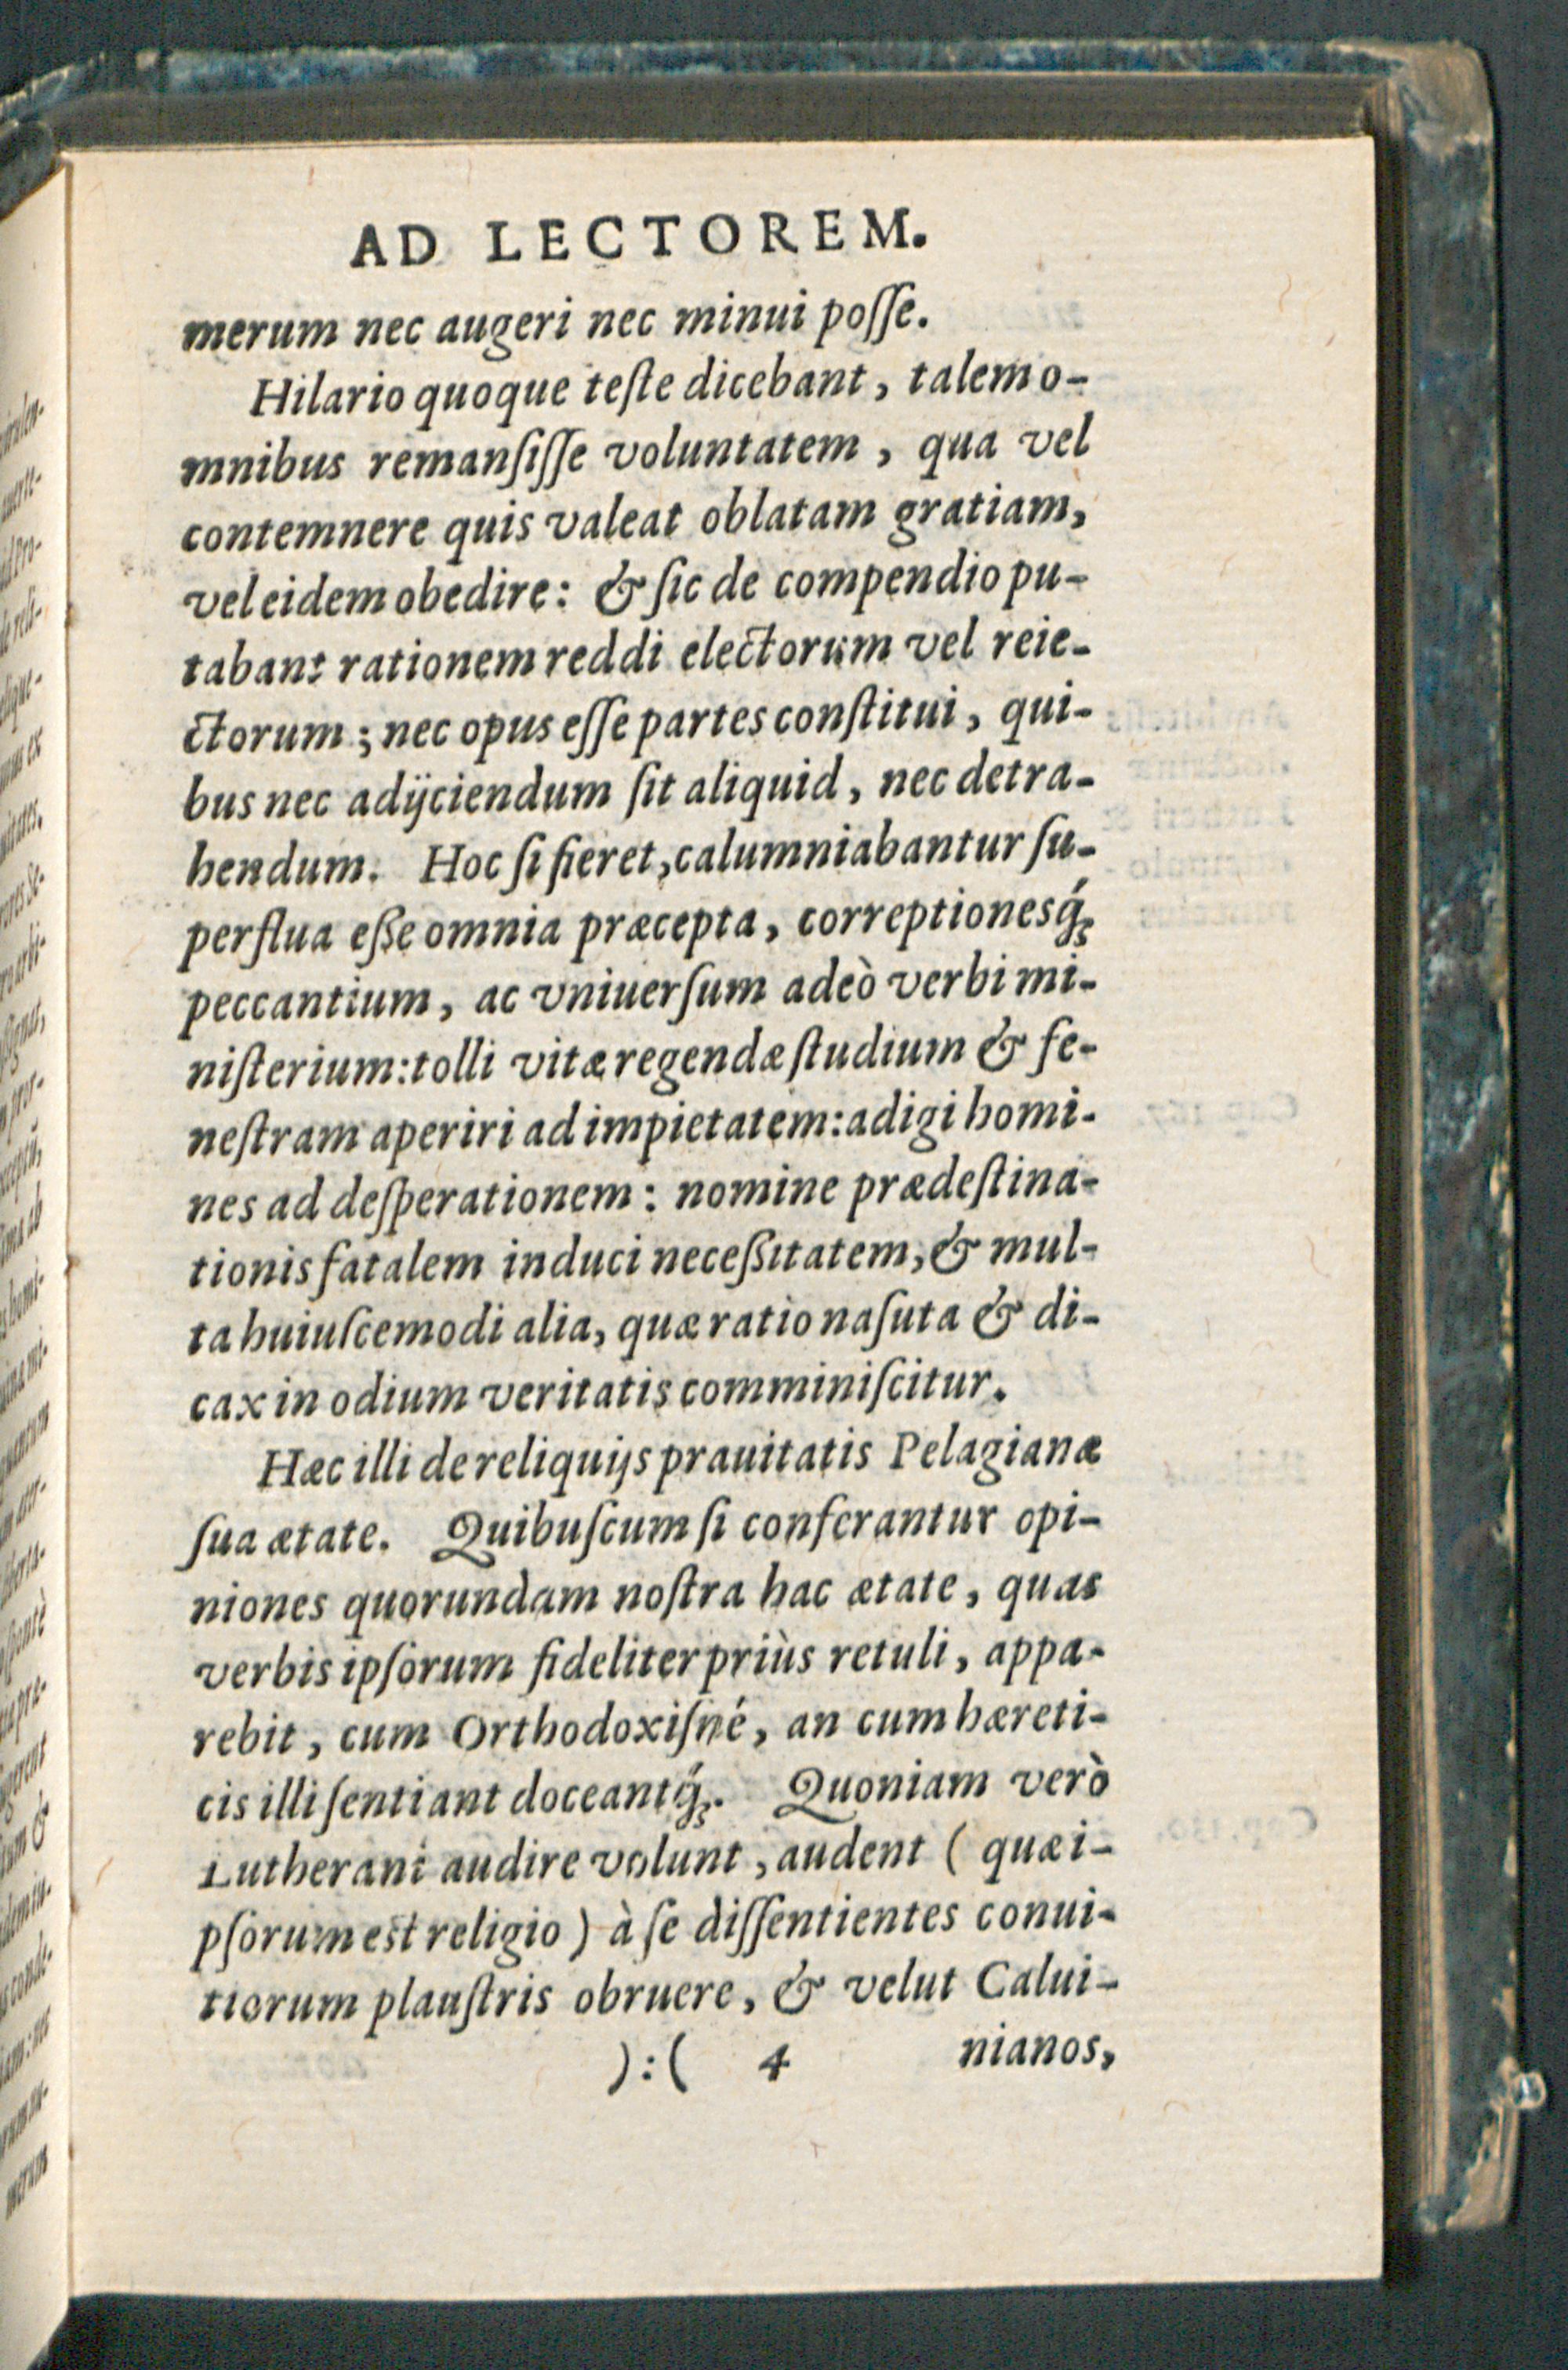 AD LECTOREM.
merum nec augeri nec minui poſſe.
Hilario quoque teſte dicebant, talem o-
mnibus remanſiſſe voluntatem, qua vel
contemnere quis valeat oblatam gratiam,
vel eidem obedire: & ſic de compendio pu-
tabant rationem reddi electorum vel reie-
ctorum; nec opus eſſe partes conſtitui, qui-
bus nec adijciendum ſit aliquid, nec detra-
hendum. Hoc ſi fieret, calumniabantur ſu-
perflua eße omnia præcepta, correptionesq́;
peccantium, ac vniuerſum adeò verbi mi-
niſterium: tolli vitæ regendæ ſtudium & fe-
neſtram aperiri ad impietatem: adigi homi-
nes ad deſperationem: nomine prædeſtina-
tionis fatalem induci neceßitatem, & mul-
ta huiuſcemodi alia, quæ ratio naſuta & di-
cax in odium veritatis comminiſcitur.
Hæc illi de reliquijs prauitatis Pelagianæ
ſua ætate. Quibuſcum ſi conferantur opi-
niones quorundam noſtra hac ætate, quas
verbis ipſorum fideliter priùs retuli, appa-
rebit, cum Orthodoxiſné, an cum hæreti-
cis illi ſentiant doceantq́;. Quoniam verò
Lutherani audire volunt, audent ( quæ i-
pſorum eſt religio ) à ſe diſſentientes conui-
tiorum plauſtris obruere, & velut Calui-
):( 4 nianos,